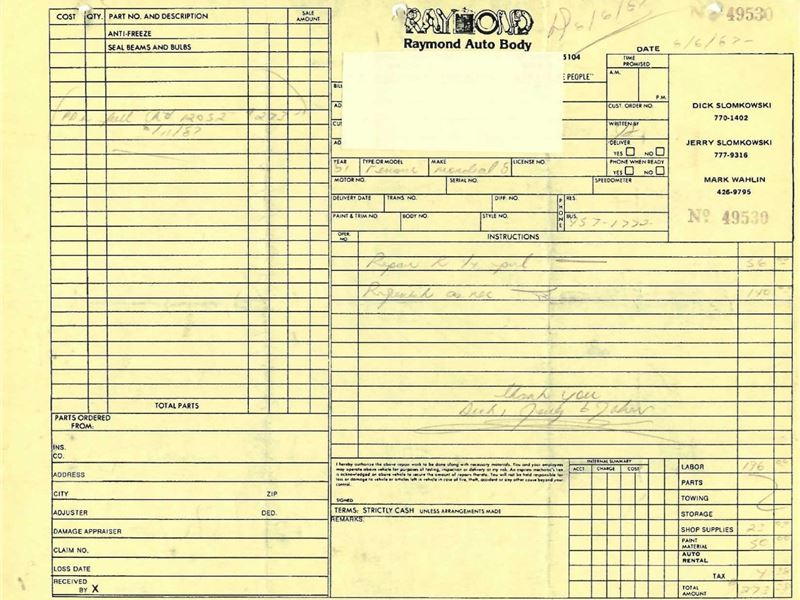 COST QTY. PART NO. AND DESCRIPTION SALE AMOUNT
ANTI-FREEZE
SEAL BEAMS AND BULBS
TOTAL PARTS
PARTS ORDERED FROM:
INS. CO.
ADDRESS
CITY ZIP
ADJUSTER DED.
DAMAGE APPRAISER
CLAIM NO.
LOSS DATE
RECEIVED BY X
RAYMOND
Raymond Auto Body
Nº 49530
DATE
5104
E PEOPLE"
TIME PROMISED
A.M.
P.M.
CUST. ORDER NO.
WRITTEN BY
DELIVER
YES NO
PHONE WHEN READY
YES NO
DICK SLOMKOWSKI
770-1402
JERRY SLOMKOWSKI
777-9316
MARK WAHLIN
426-9795
Nº 49530
YEAR TYPE OR MODEL MAKE LICENSE NO.
MOTOR NO. SERIAL NO. SPEEDOMETER
DELIVERY DATE TRANS. NO. DIFF. NO. PHONE RES.
PAINT & TRIM NO. BODY NO. STYLE NO. BUS. 457-1772
OPER. NO. INSTRUCTIONS
Repair
56
Refinish as nec
140
thank you
I hereby authorize the above repair work to be done along with necessary materials. You and your employees may operate above vehicle for purposes of testing, inspection or delivery at my risk. An express mechanic's lien is acknowledged on above vehicle to secure the amount of repairs thereto. You will not be held responsible for loss or damage to vehicle or articles left in vehicle in case of fire, theft, accident or any other cause beyond your control.
SIGNED
TERMS: STRICTLY CASH UNLESS ARRANGEMENTS MADE
REMARKS:
INTERNAL SUMMARY
ACCT. CHARGE COST
LABOR 196
PARTS
TOWING
STORAGE
SHOP SUPPLIES 23
PAINT MATERIAL 50
AUTO RENTAL
TAX
TOTAL AMOUNT 273